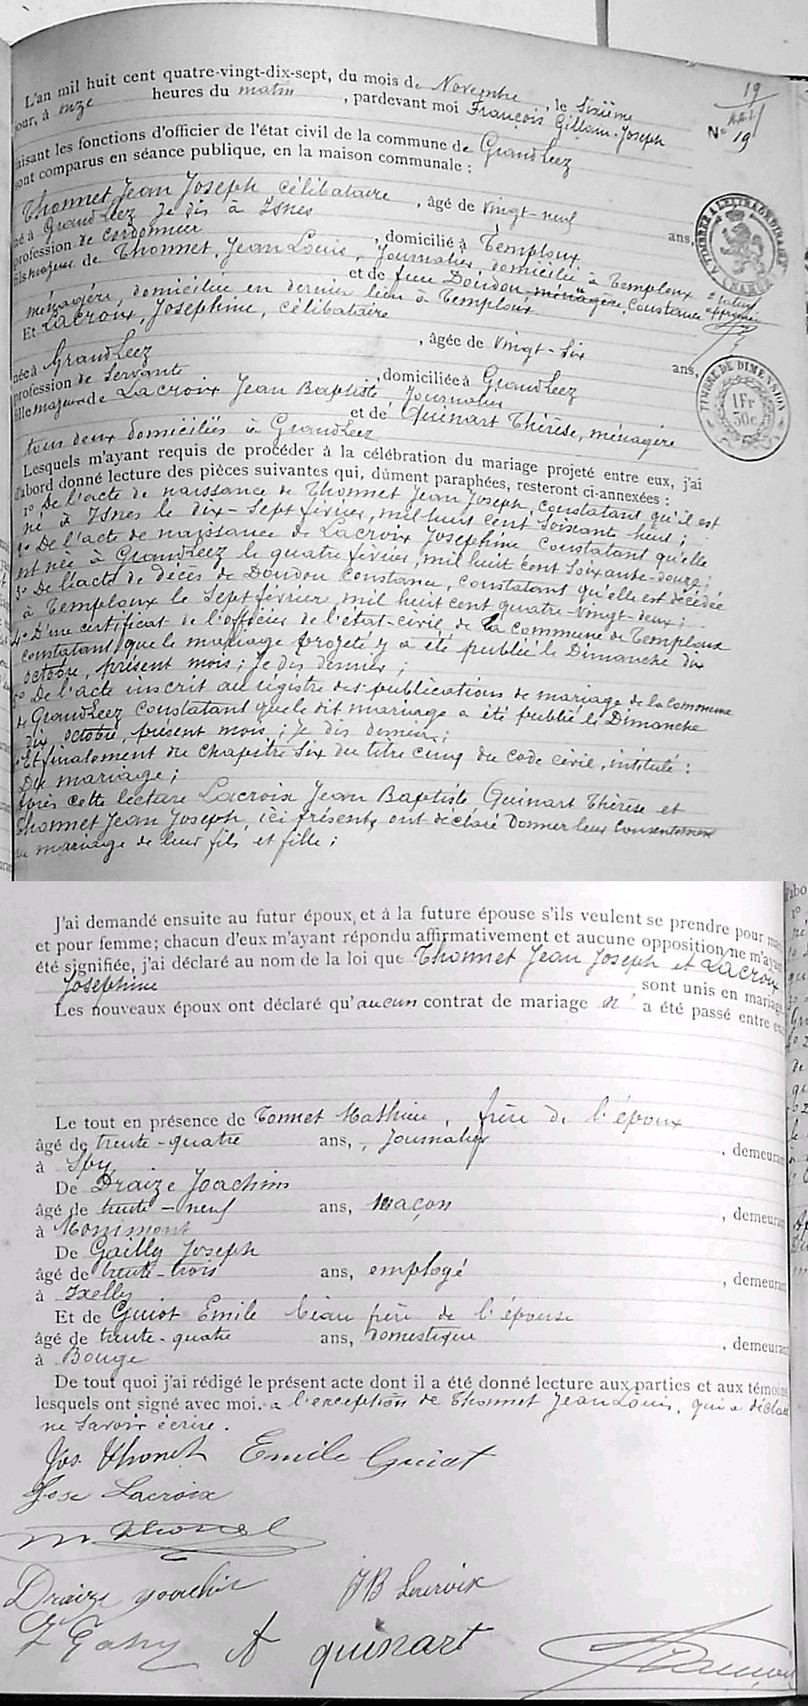 L'an mil huit cent quatre-vingt-dix-sept, du mois de Novembre, le Sixième
jour, à onze heures du matin, pardevant moi François Gillain-Joseph
faisant les fonctions d'officier de l'état civil de la commune de GrandLeez
sont comparus en séance publique, en la maison communale :
19
N° 19
Thonnet Jean Joseph célibataire, âgé de vingt-neuf ans,
né à GrandLeez je dis à Isnes
profession de cordonnier, domicilié à Temploux
fils majeur de Thonnet, Jean Louis, Journalier, domicilié à Temploux
et de feue Doudon ménagère, Constance
ménagère, domiciliée en dernier lieu à Temploux
Et Lacroix, Joséphine, célibataire
, âgée de vingt-six ans,
née à GrandLeez
profession de Servante, domiciliée à GrandLeez
fille majeure de Lacroix Jean Baptiste Journalier
et de Quinart Thérèse, ménagère
tous deux domiciliés à GrandLeez
TIMBRE DE DIMENSION
1Fr
30c
Lesquels m'ayant requis de procéder à la célébration du mariage projeté entre eux, j'ai
d'abord donné lecture des pièces suivantes qui, dûment paraphées, resteront ci-annexées :
1° De l'acte de naissance de Thonnet Jean Joseph, constatant qu'il est
né à Isnes le dix-Sept février, mil huit cent Soixante huit ;
2° De l'acte de naissance de Lacroix Joséphine constatant qu'elle
est née à GrandLeez le quatre février, mil huit cent Soixante-douze ;
3° De l'acte de décès de Doudon constance, constatant qu'elle est décédée
à Temploux le Sept février, mil huit cent quatre-vingt-deux ;
4° D'une certificat de l'officier de l'état-civil de la commune de Temploux
constatant que le mariage projeté y a été publié le Dimanche dix
octobre, présent mois ; je dis dernier ;
5° De l'acte inscrit au régistre des publications de mariage de la commune
de GrandLeez constatant que le dit mariage a été publié le Dimanche
dix octobre, présent mois ; je dis dernier ;
Et finalement du chapitre Six du titre cinq du code civil, intitulé :
Du mariage ;
Après cette lecture Lacroix Jean Baptiste, Quinart Thérèse et
Thonnet Jean Joseph, ici présents, ont déclaré Donner leur Consentement
au mariage de leur fils et fille ;
J'ai demandé ensuite au futur époux, et à la future épouse s'ils veulent se prendre pour mari
et pour femme ; chacun d'eux m'ayant répondu affirmativement et aucune opposition ne m'ayant
été signifiée, j'ai déclaré au nom de la loi que Thonnet Jean Joseph et Lacroix
Joséphine sont unis en mariage
Les nouveaux époux ont déclaré qu'aucun contrat de mariage n'a été passé entre eux
Le tout en présence de Tonnet Mathieu, frère de l'époux
âgé de trente-quatre ans, Journalier, demeurant
à Spy
De Draize Joachim
âgé de trente-neuf ans, maçon, demeurant
à Monimont
De Gailly Joseph
âgé de trente-trois ans, employé, demeurant
à Ixelles
Et de Guiot Emile beau frère de l'épouse
âgé de trente-quatre ans, domestique, demeurant
à Bouge
De tout quoi j'ai rédigé le présent acte dont il a été donné lecture aux parties et aux témoins
lesquels ont signé avec moi. à l'exception de Thonnet Jean Louis, qui a déclaré
ne Savoir écrire.
Jos. Thonet Emile Guiot
Jose Lacroix
M Thonet
Draize Joachim JB Lacroix
quinart